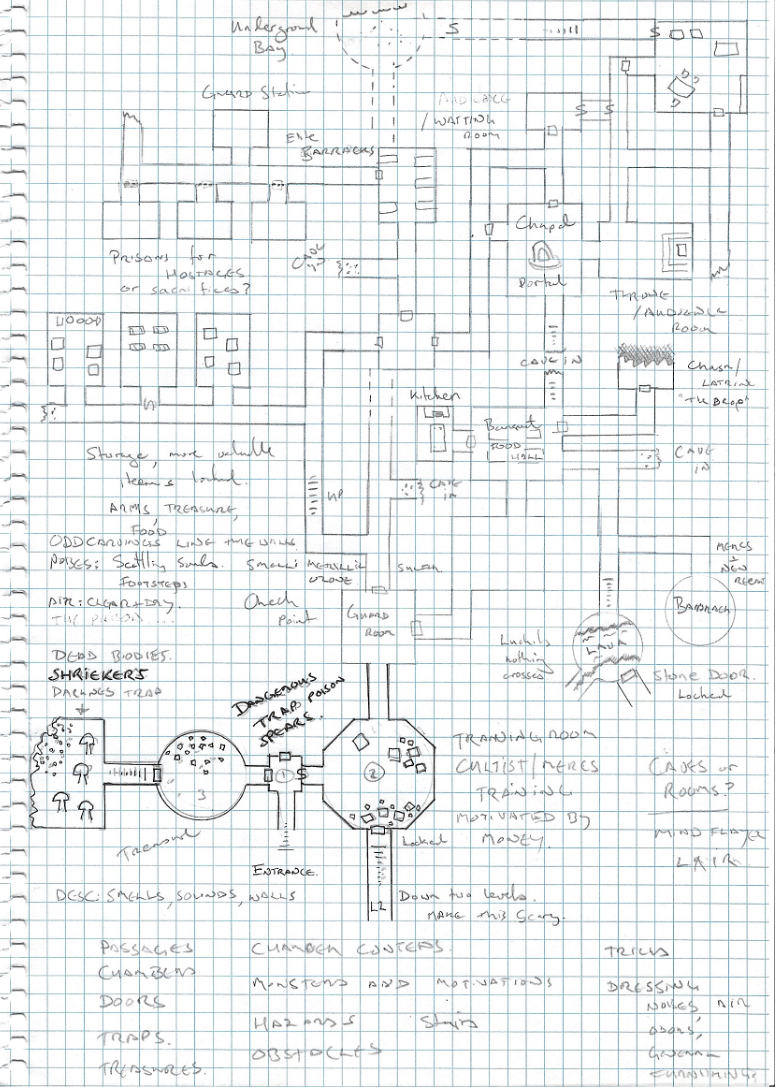 Underground
Bay
S
S
Guard Station
AUDIENCE
/WAITING
ROOM
S
S
Elite
BARRACKS
Chapel
Portal
PRISONS for
HOSTAGES
or sacrifices?
THRONE
/AUDIENCE
ROOM
CAVE IN
Chasm/
LATRINE
"THE DROP"
Kitchen
Banquet
FOOD
HALL
Storage, more valuable
items locked.
CAVE
IN
UP
CAVE
IN
ARMS, TREASURE,
FOOD
ODD CARVINGS LINE THE WALLS
NOISES: Scuttling Sounds.
FOOTSTEPS
SMELL: METALLIC
OZONE
AIR: CLEAR + DRY.
Check
Point
GUARD
ROOM
MERCS
+
NEW
BARRACK
LAVA
Luckily
nothing
crossed
STONE DOOR.
Locked
DEAD BODIES.
SHRIEKERS
DARKNES TRAP
DANGEROUS
TRAP POISON
SPEARS.
3
1
S
2
TRAINING ROOM
CULTIST/MERCS
TRAINING
MOTIVATED BY
MONEY.
CAVES or
ROOMS?
MIND FLAYER
LAIR
Treasure
Locked
ENTRANCE.
DESC: SMELLS, SOUNDS, WALLS
L2
Down two levels.
MAKE this Scary.
PASSAGES
CHAMBERS
DOORS
TRAPS.
TREASURES.
CHAMBER CONTENTS.
MONSTERS AND MOTIVATIONS
HAZARDS
Stairs
OBSTACLES
TRICKS
DRESSING
NOISES, AIR
ODORS,
GENERAL
FURNISHINGS